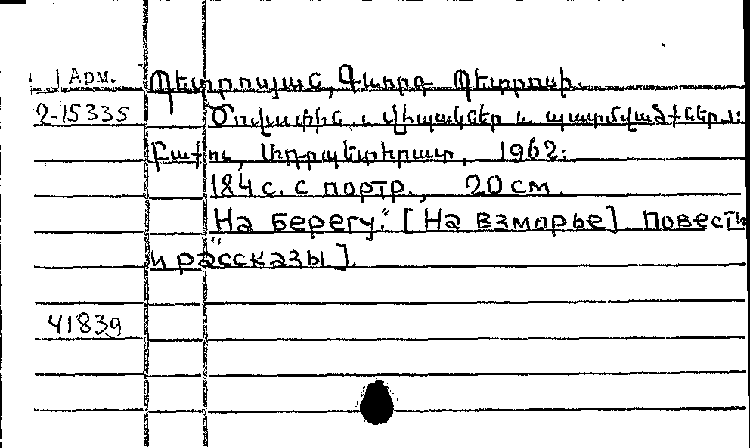 Арм. Պետրոսյան, Գևորգ Պետրոսի.
2-15335 Ծովափին. Վիպակներ և պատմվածքներ։
Բաքու, Ադրպետհրատ, 1962։
184 с. с портр., 20 см.
"На берегу." [На взморье] Повести
и рассказы].
41839